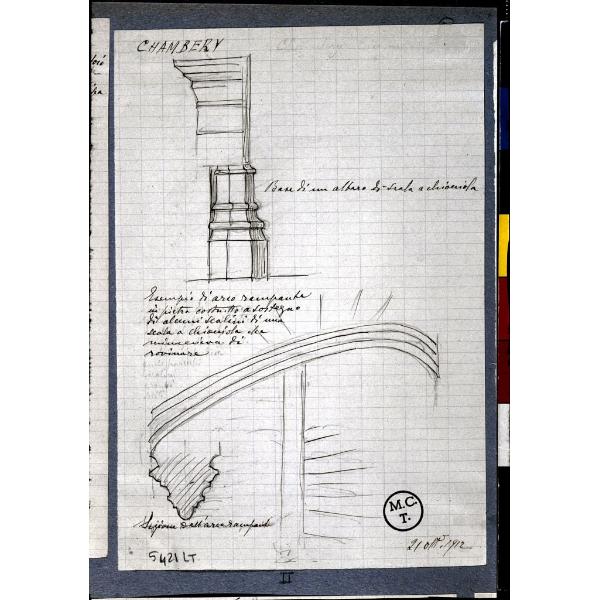 CHAMBERY
Base di un albero di scala a chiociola
Esempio di arco rampante
in pietra costruito a sostegno
di alcuni scalini di una
scala a chiociola che
minacciava di
rovinare
Sezione dell'arco rampante
M.C.
T.
5421 LT.
21 ott. 1912
II